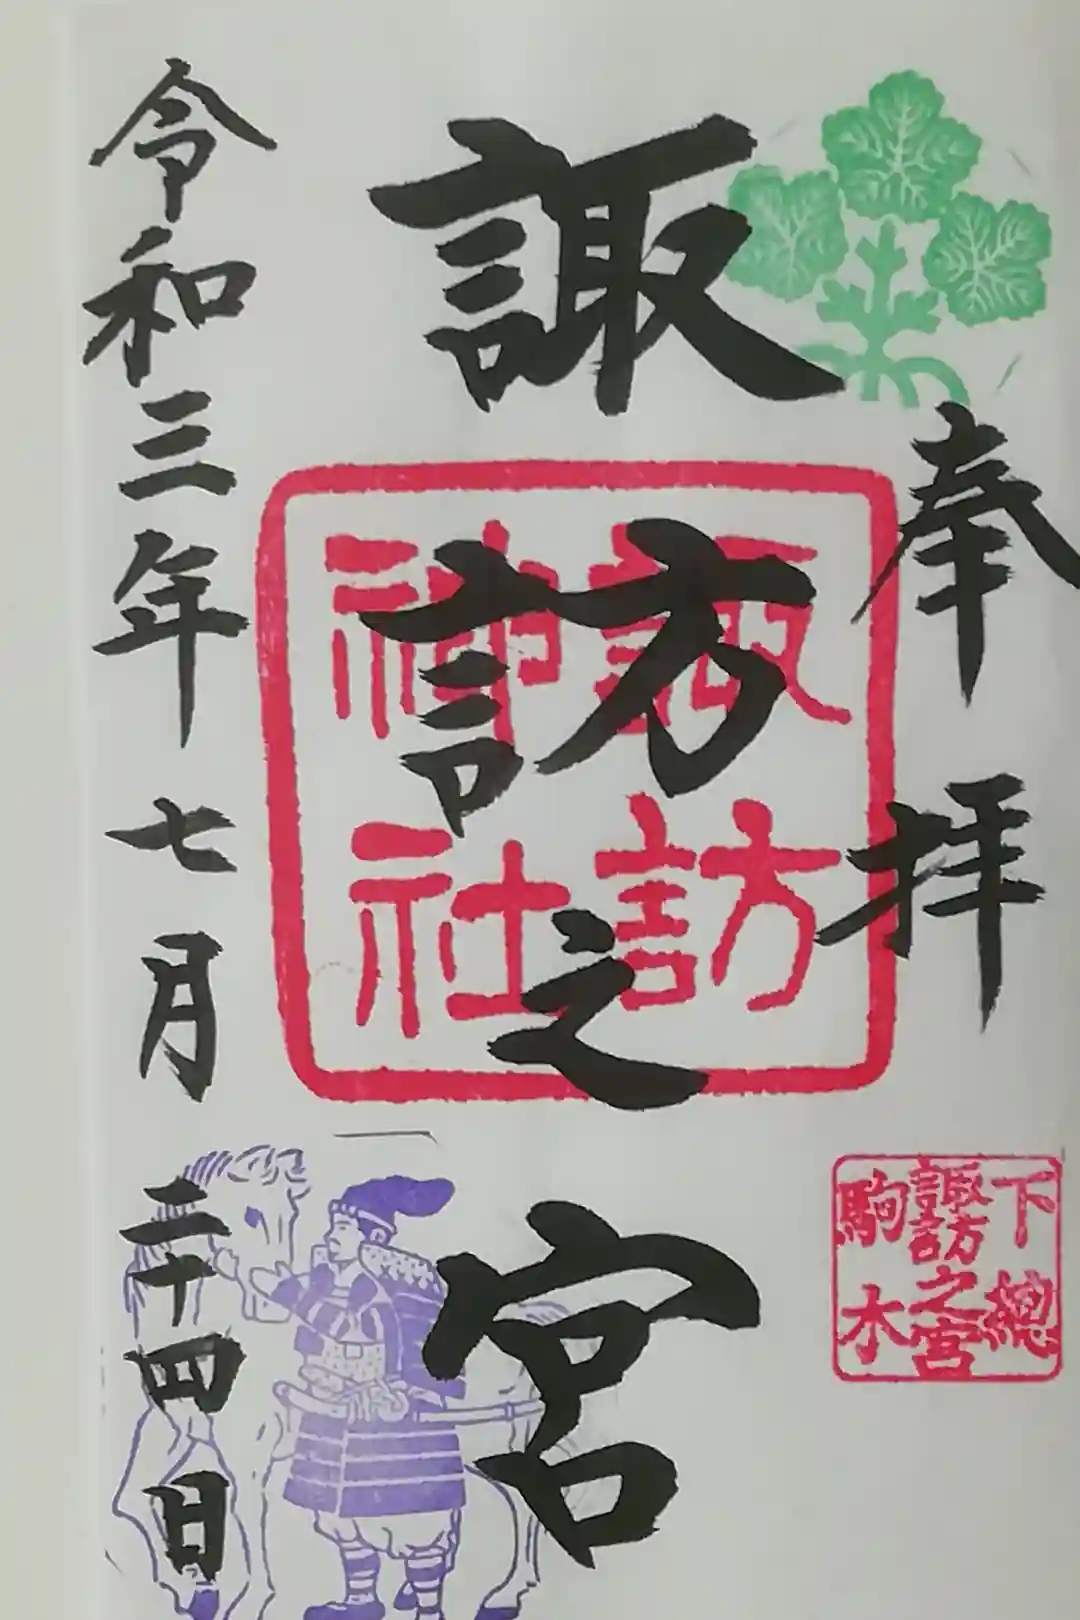 奉拝
諏訪之宮
令和三年七月二十四日
諏訪
神社
下總
諏訪之宮
駒木